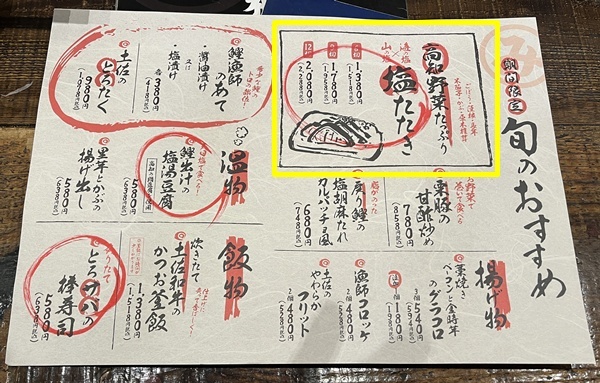 み
明神水産
旬のおすすめ
高知野菜たっぷり
塩たたき
海の塩
山の
1,380円
(1,518円税込)
1,780円
12切
2,080円
(2,288円税込)
鰹漁師
のあて
・酒油漬け
又は
・塩漬け
各380円
(418円税込)
土佐の
とろたく
980円
揚げ物
藁焼き
3個540円
(594円税込)
1個180円
漁師コロッケ
2個480円
土佐の
やわらか
フリット
2個480円
甘酢炒め
780円
(858円税込)
戻り鰹の
塩胡麻だれ
カルパッチョ風
680円
(748円税込)
温物
鰹出汁の
塩湯豆腐
580円
里芋とかぶの
揚げ出し
530円
飯物
炊きたて
土佐和牛の
かつお釜飯
1,380円
(1,518円税込)
とろサバの
棒寿司
580円
(638円税込)